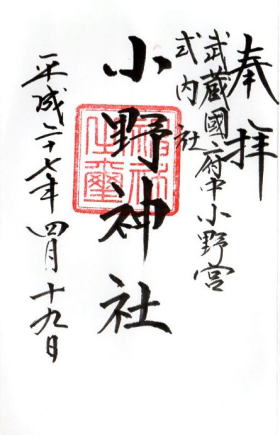 奉拝
武蔵國府中小野宮
式内社
小野神社
平成二十七年四月十九日